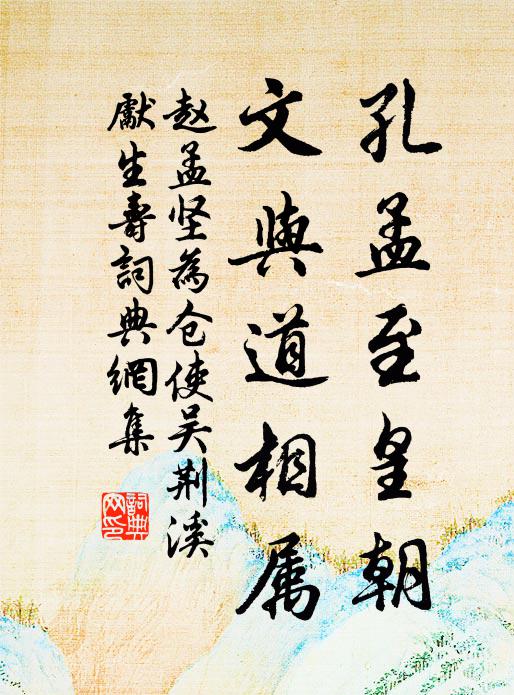 孔孟至皇朝
文與道相属
赵孟坚為仓使吴荆溪
獻生壽詞典網集
詞典网印